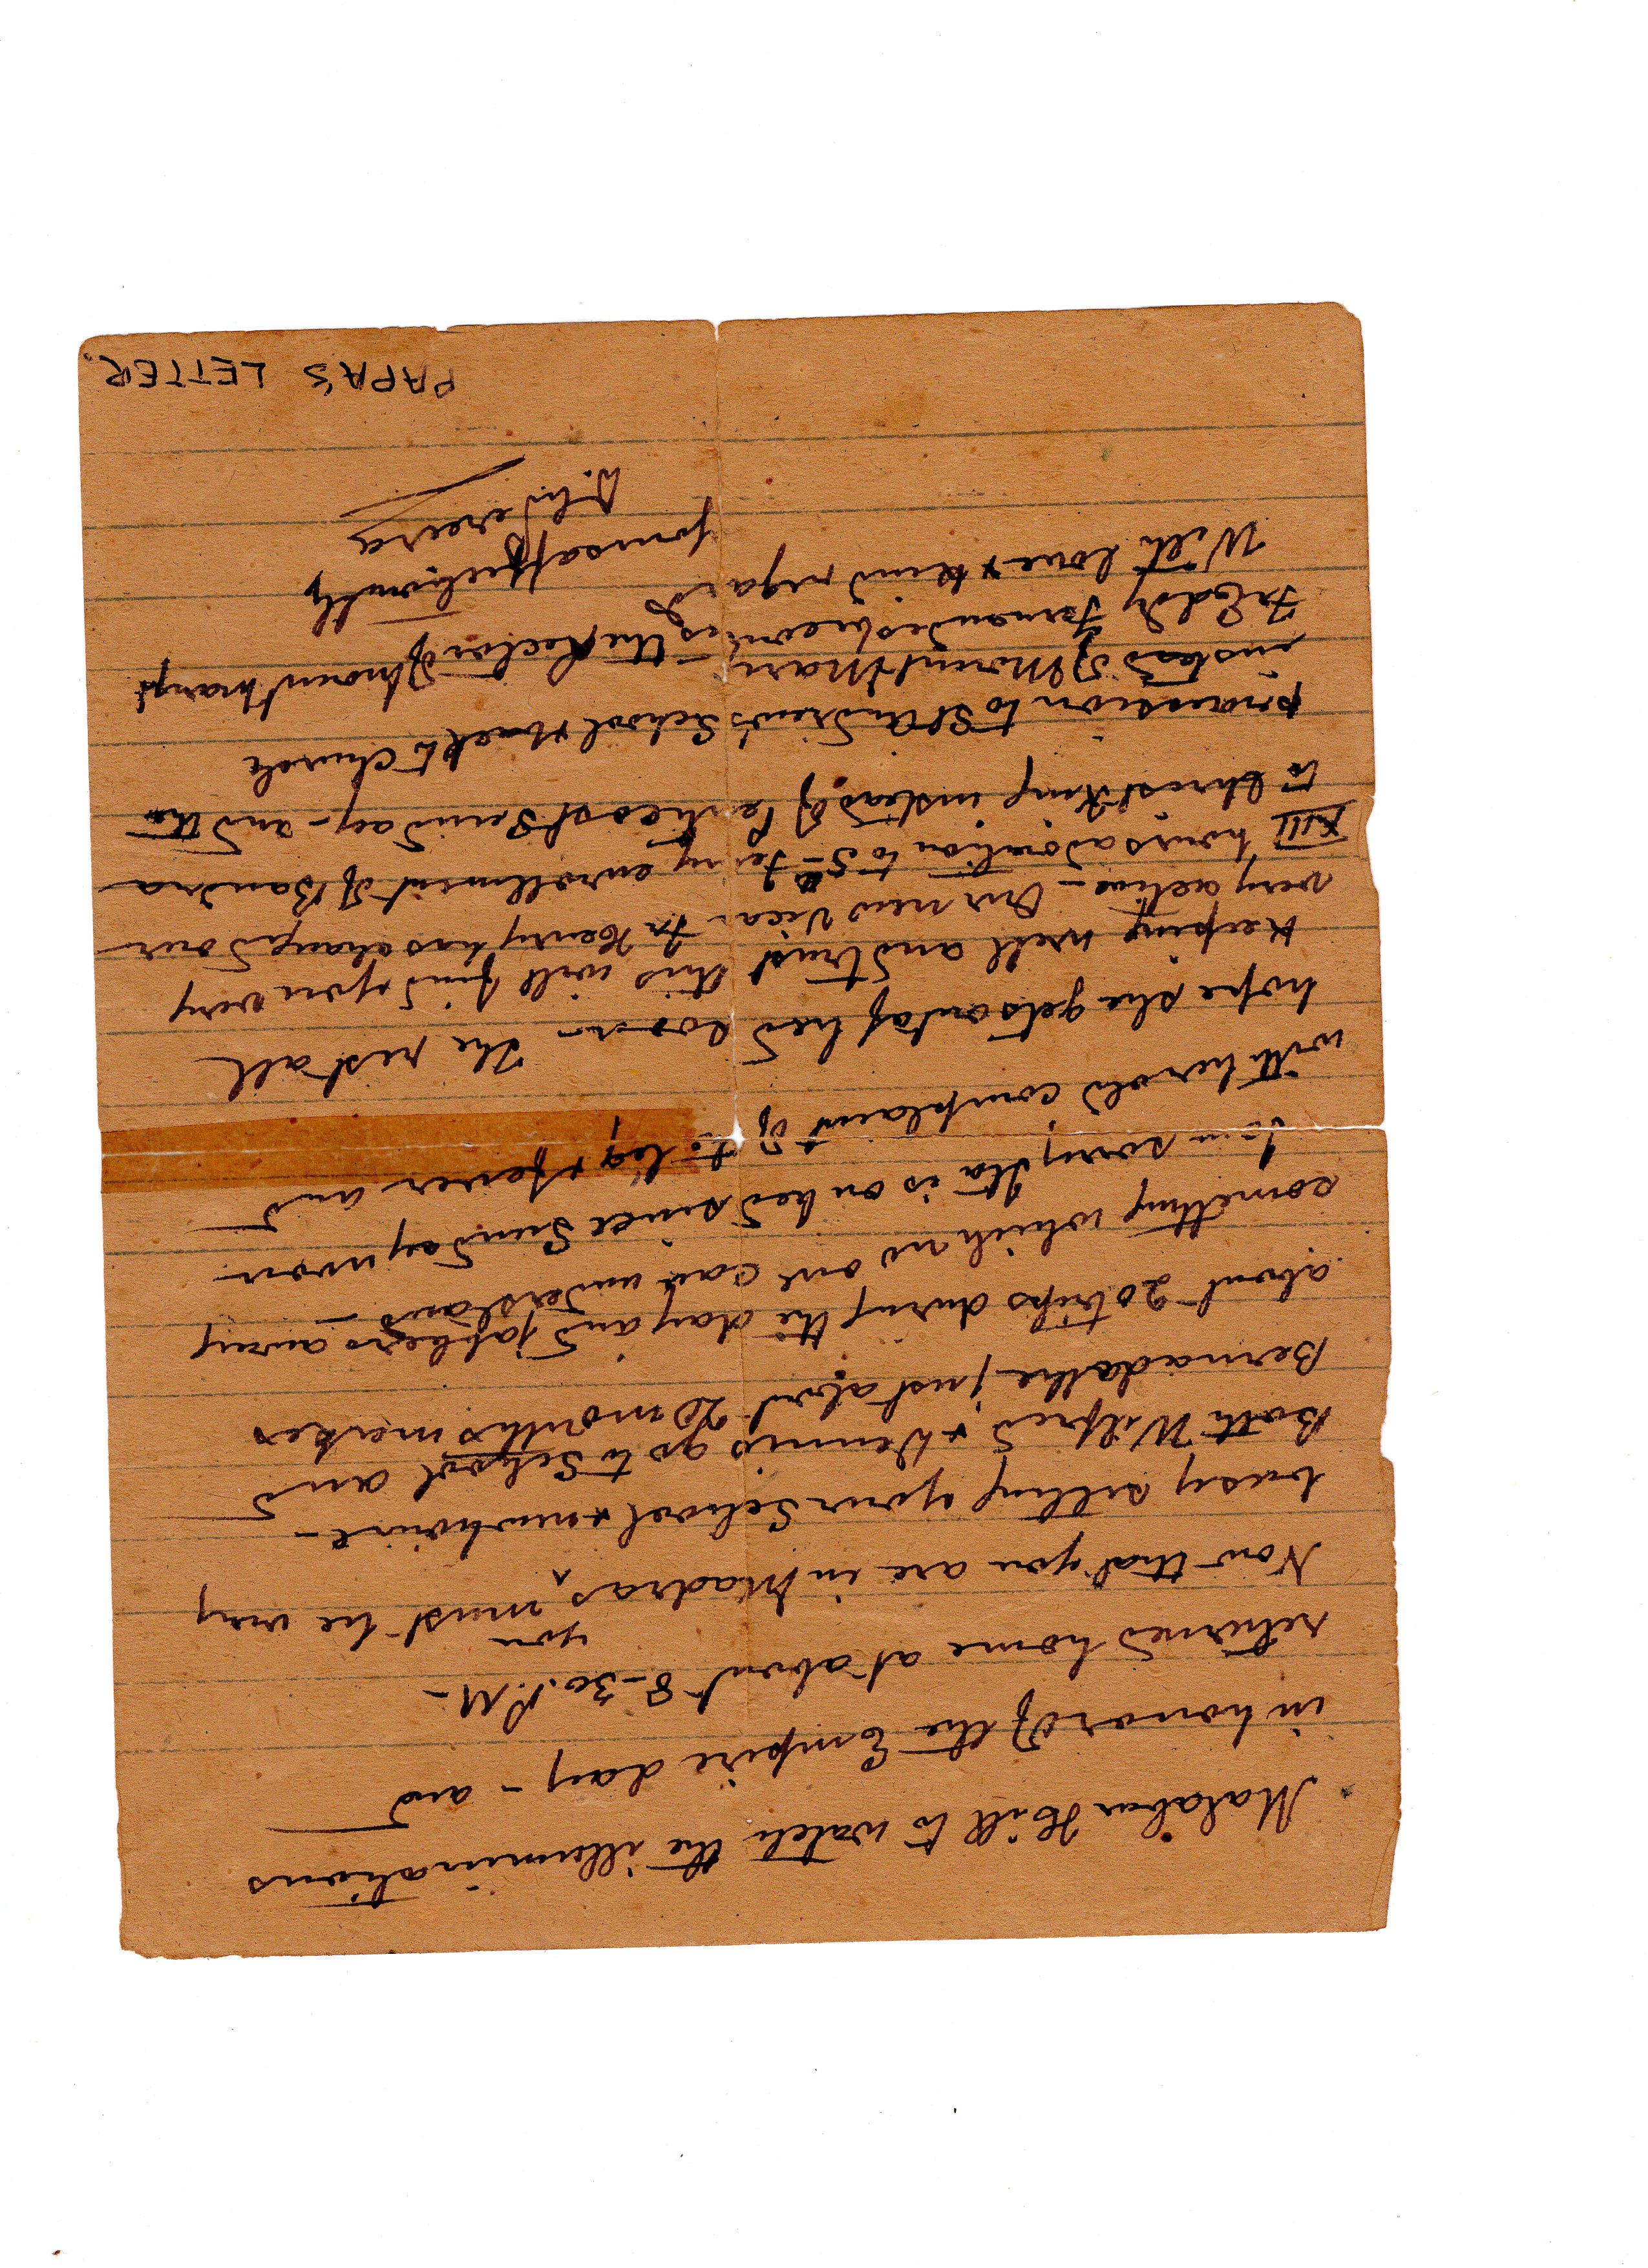 Malabar Hill to watch the illuminations
in honor of the Empire day - and
returned home at about 8-30. P.M -
Now that you are in Madras you must be very
busy setting your School & new house -
Both Wilfred & Dennis go to School and
Bernadette just about 20 months makes
about 20 trips during the day and jabbers away
something which no one can understand -
I am sorry Ita is on bed since Sunday noon
with her old complaint of leg & fever and
hope she gets out of bed soon - The rest all
Keeping well and trust this will find you very
very active - Our new Vicar Fr Henry has changed our
XIII hours adoration to 5th enrollment of Bandra
to Christ King instead of Pentecost Sunday - and the
procession to St Andrew's School & back to church
instead of Mount Mary
Fr Eddy Fernandes becomes the Rector of Mount Mary's
With love & kind regards
yours affectionately
Pereira
PAPA'S LETTER.